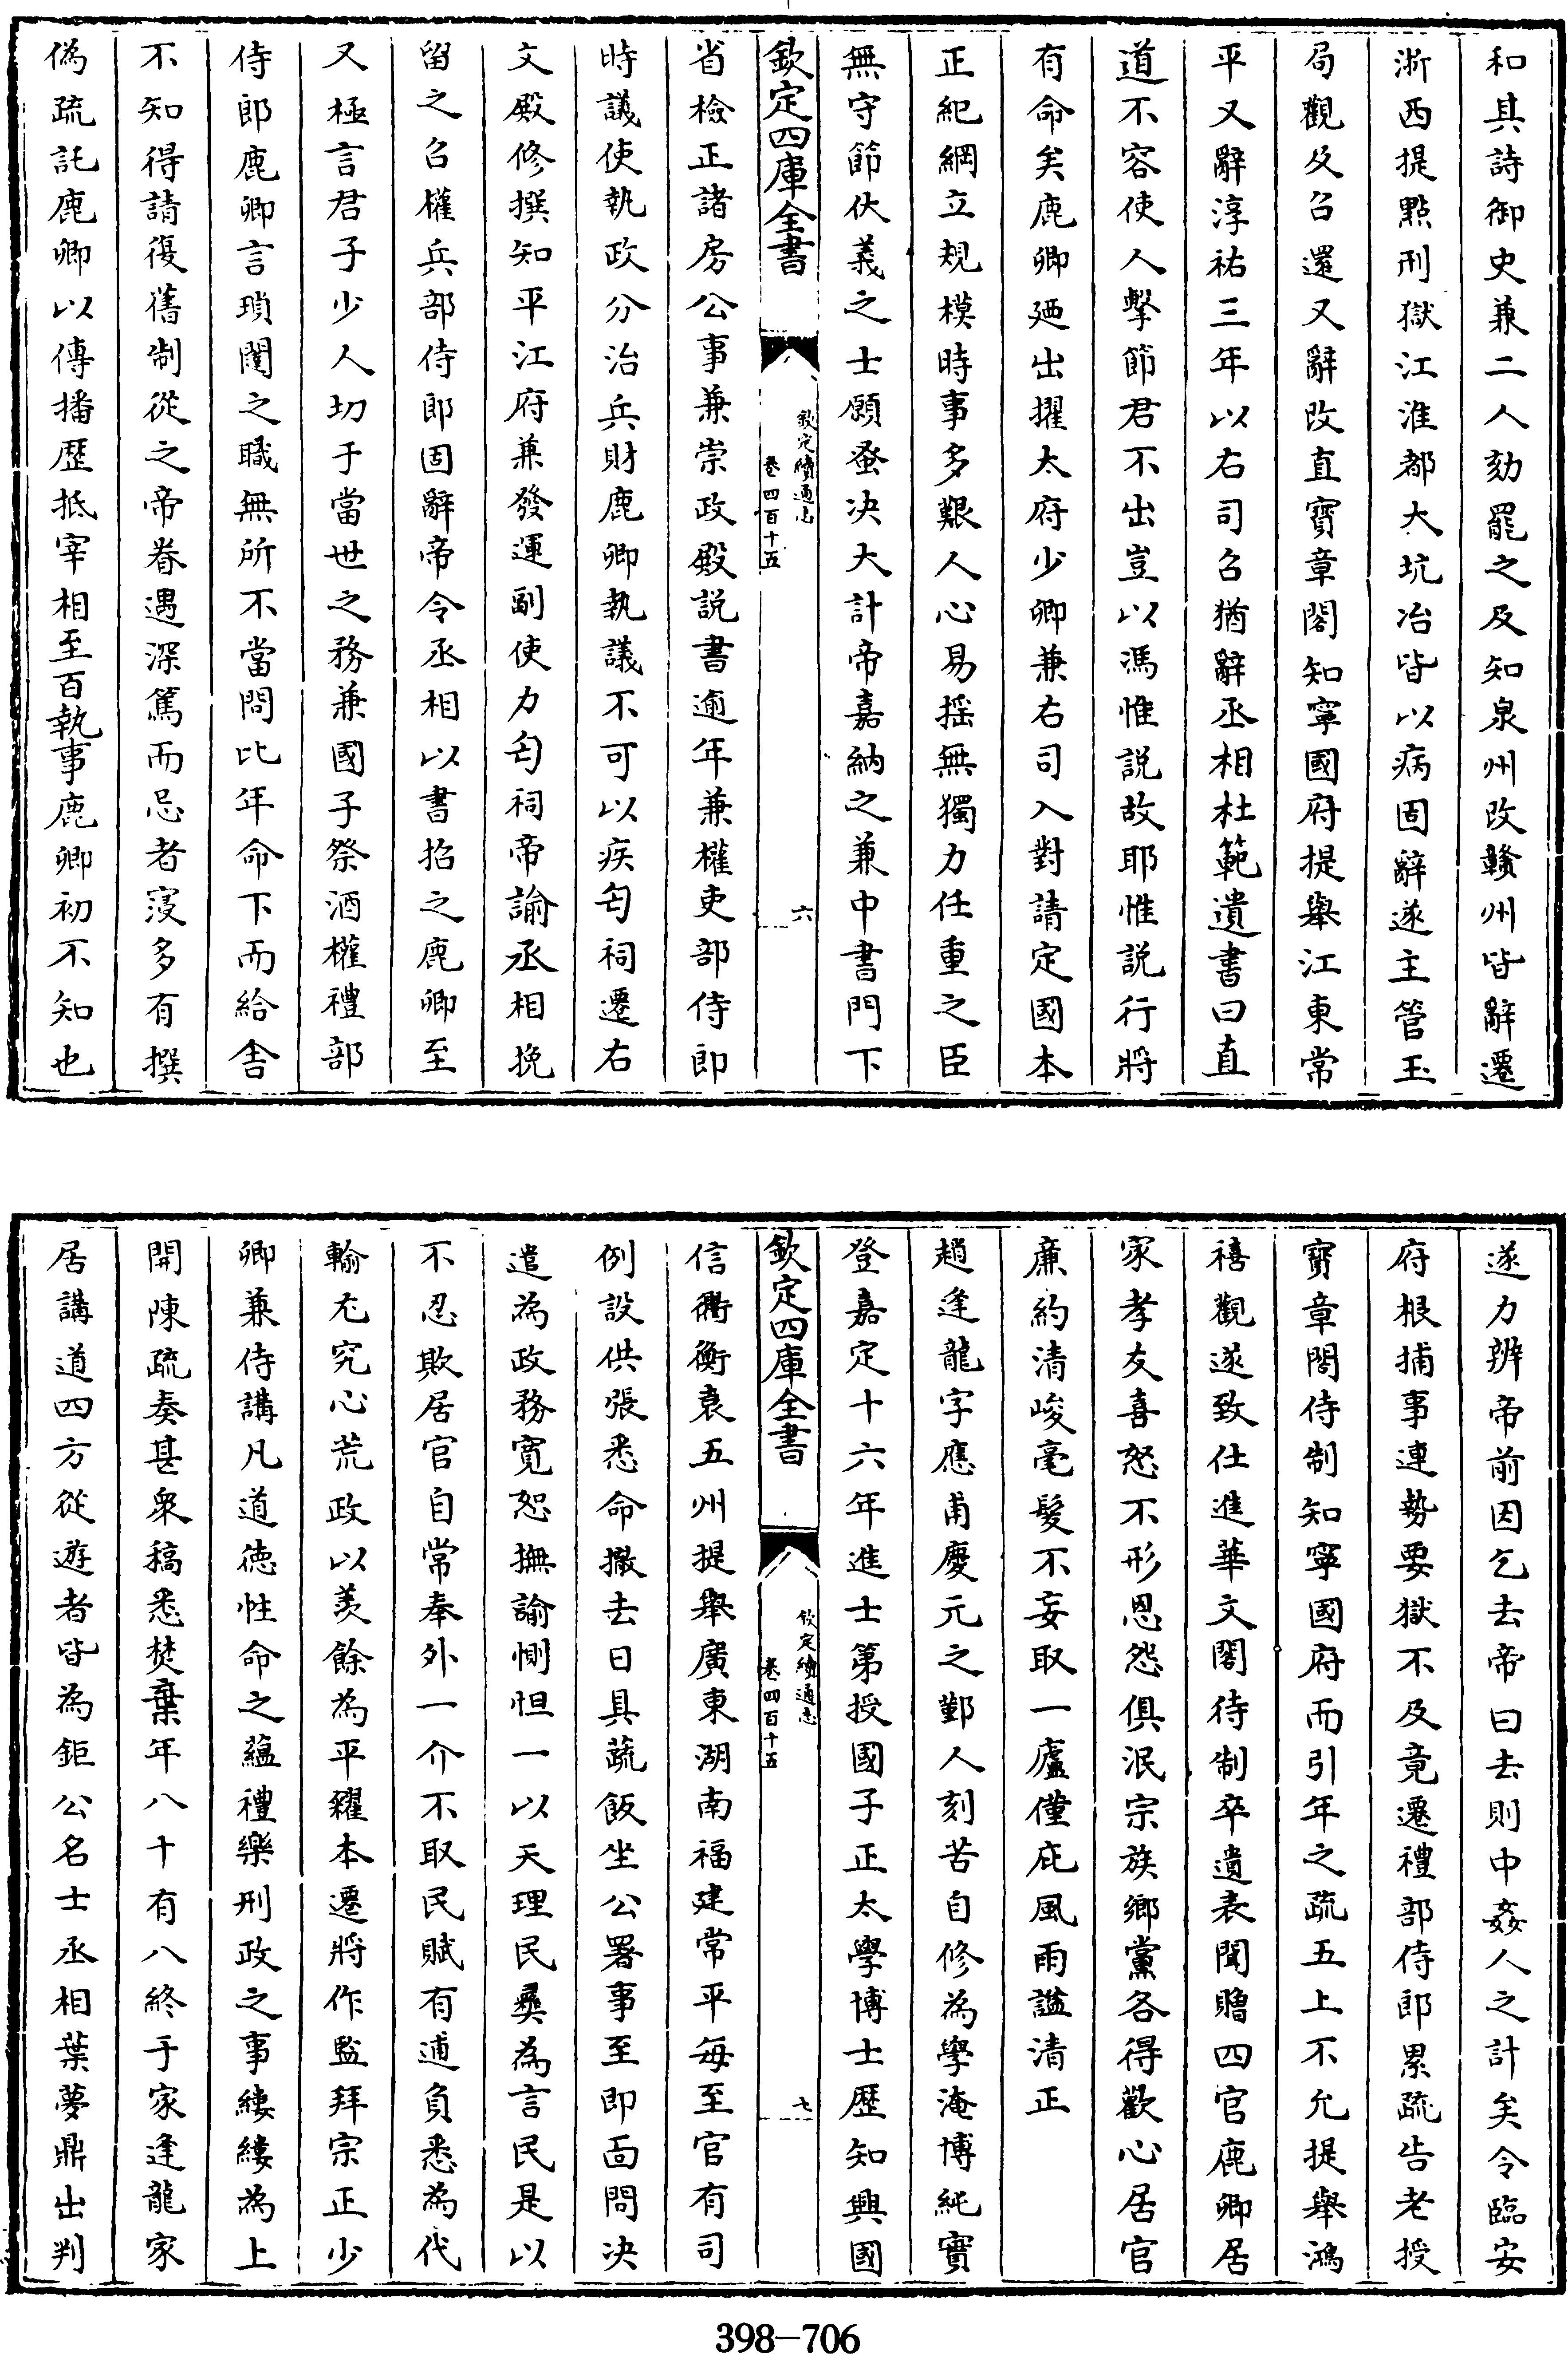 和其詩御史兼二人劾罷之及知泉州改贛州皆辭遷
浙西提點刑獄江淮都大坑冶皆以病固辭遂主管玉
局觀及召還又辭改直寶章閣知寧國府提舉江東常
平又辭淳祐三年以右司召猶辭丞相杜範遺書曰直
道不容使人擊節君不出豈以馮惟說故耶惟說行將
有命矣鹿卿廼出擢太府少卿兼右司入對請定國本
正紀綱立規模時事多艱人心易摇無獨力任重之臣
無守節伏義之士願蚤决大計帝嘉納之兼中書門下
欽定四庫全書
欽定續通志
卷四百十五
六
省檢正諸房公事兼崇政殿說書逾年兼權吏部侍郎
時議使執政分治兵財鹿卿執議不可以疾匄祠遷右
文殿修撰知平江府兼發運副使力匄祠帝諭丞相挽
留之召權兵部侍郎固辭帝令丞相以書招之鹿卿至
又極言君子少人切于當世之務兼國子祭酒權禮部
侍郎鹿卿言瑣闥之職無所不當問比年命下而給舍
不知得請復舊制從之帝眷遇深篤而忌者寖多有撰
偽疏託鹿卿以傳播歷抵宰相至百執事鹿卿初不知也
遂力辨帝前因乞去帝曰去則中姦人之計矣令臨安
府根捕事連勢要獄不及竟遷禮部侍郎累疏告老授
寶章閣侍制知寧國府而引年之疏五上不允提舉鴻
禧觀遂致仕進華文閣待制卒遺表聞贈四官鹿卿居
家孝友喜怒不形恩怨俱泯宗族鄉黨各得歡心居官
廉約清峻毫髮不妄取一廬僅庇風雨謚清正
趙逢龍字應甫慶元之鄞人刻苦自修為學淹博純實
登嘉定十六年進士第授國子正太學博士歷知興國
欽定四庫全書
欽定續通志
卷四百十五
七
信衢衡袁五州提舉廣東湖南福建常平每至官有司
例設供張悉命撤去日具蔬飯坐公署事至即面問决
遣為政務寛恕撫諭惻怛一以天理民彞為言民是以
不忍欺居官自常奉外一介不取民賦有逋負悉為代
輸尤究心荒政以羨餘為平糴本遷將作監拜宗正少
卿兼侍講凡道德性命之藴禮樂刑政之事縷縷為上
開陳疏奏甚衆稿悉焚棄年八十有八終于家逢龍家
居講道四方從遊者皆為鉅公名士丞相葉夢鼎出判
398-706